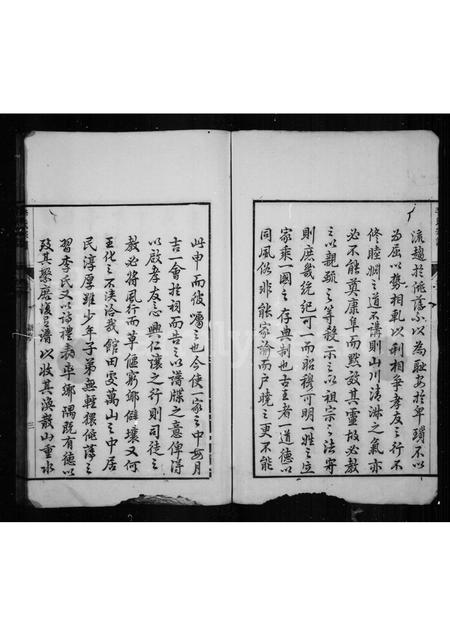 流趨於佻蕩不以為耻安於卑躅不以
為屈以勢相軋以利相爭孝友之行不
修睦婣之道不講則山川清淋之氣亦
必不能奠康阜而默效其靈故必教
之以親疏之等殺示之以祖宗之法守
則庶幾統紀可一而昭穆可明一姓之
家乘一國之存典制也古王者一道德以
同風俗非能家諭而戶曉之更不能
此申而彼囑之也今使一家之中每月
吉一會於祠而告之以譜牒之意俾得
以啟孝友之心興仁讓之行則司徒之
教必將風行而草偃窮鄉僻壤又何
王化之不浹洽哉館田安萬山之中居
民淳厚雖少年子弟無輕猥佻蕩之
習李氏又以詩禮表率鄉隅既有德以
致其聚應復有譜以收其渙散山重水